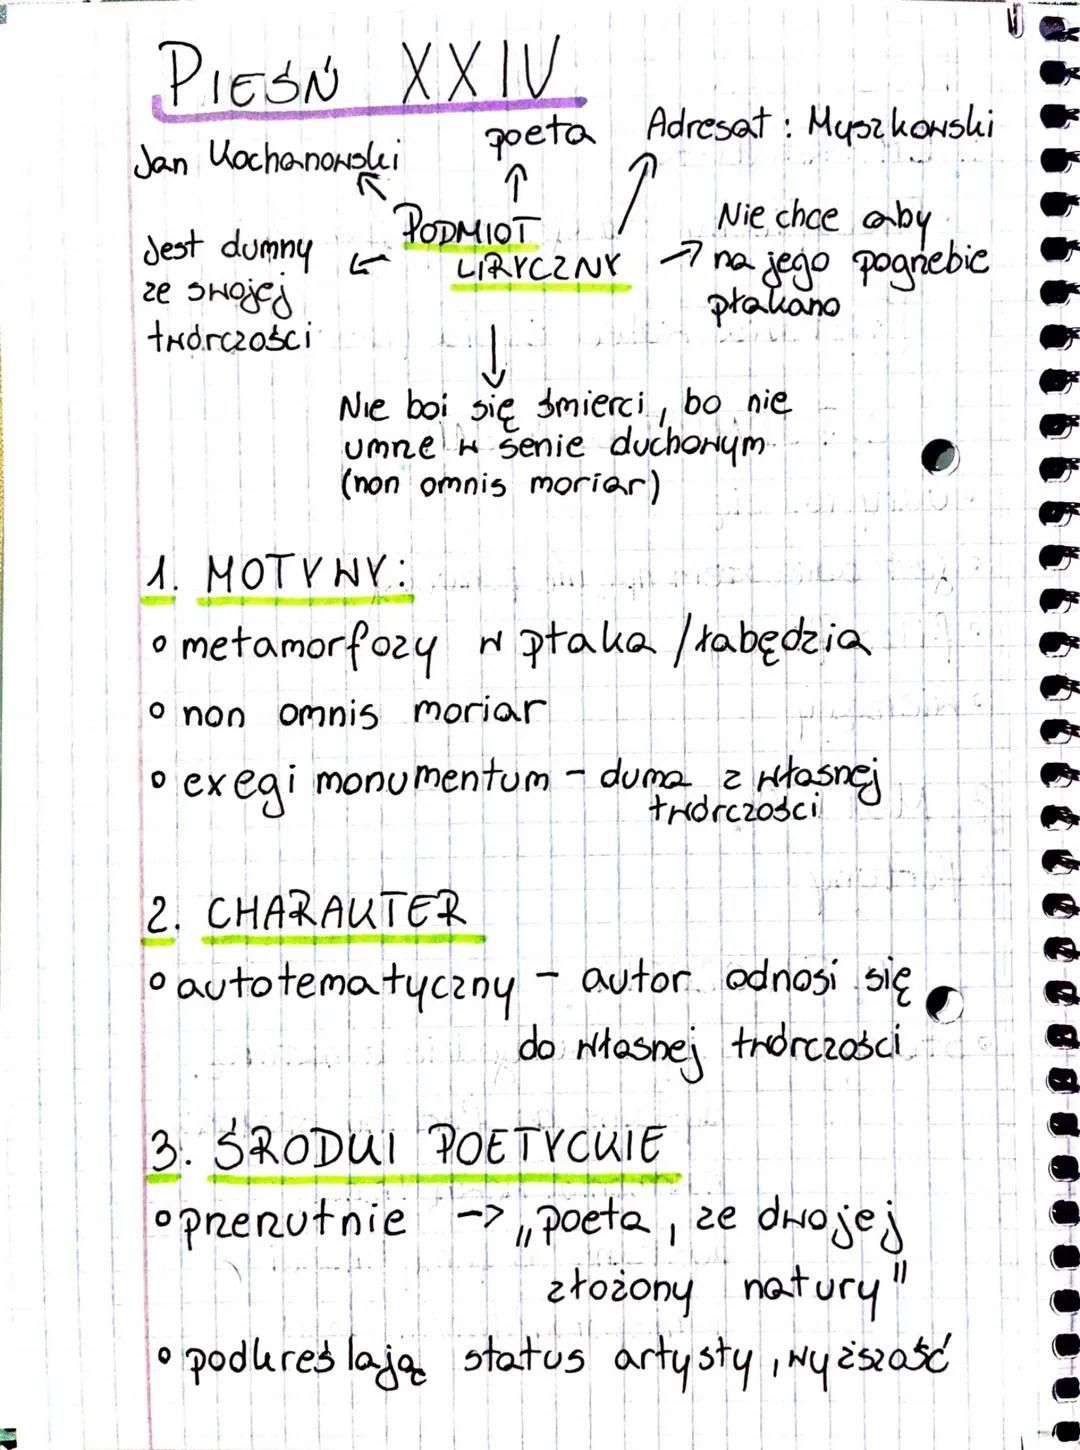 PIEŚŃ XXIV
Jan Kochanowski
poeta
Adresat : Myszkowski
PODMIOT
LIRYCZNY
Jest dumny
ze swojej
twórczości
Nie chce aby
na jego pogrzebie
płakano
Nie boi się śmierci, bo nie
umrze w senie duchowym
(non omnis moriar)
1. MOTYWY:
o metamorfozy w ptaka / łabędzia
o non omnis moriar
o exegi monumentum – duma z własnej
twórczości
2. CHARAKTER
o autotematyczny – autor odnosi się
do własnej twórczości
3. ŚRODKI POETYCKIE
o przerzutnie -> „poeta, ze dwojej
złożony natury"
o podkreślają status artysty, wyższość